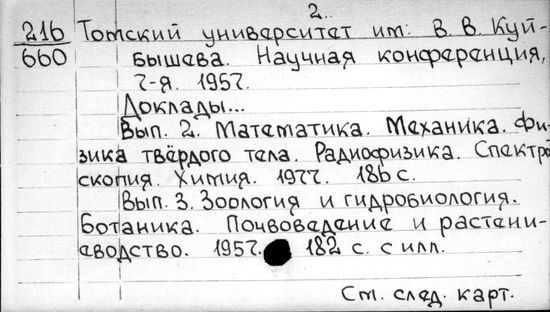 2.
216 Томский университет им. В. В. Куй-
660 бышева. Научная конференция,
7-я. 1957.
Доклады...
Вып. 2. Математика. Механика. Фи-
зика твёрдого тела. Радиофизика. Спектро
скопия. Химия. 1977. 186 с.
Вып. 3. Зоология и гидробиология.
Ботаника. Почвоведение и растени-
еводство. 1957. 182 с. с илл.
См. след. карт.